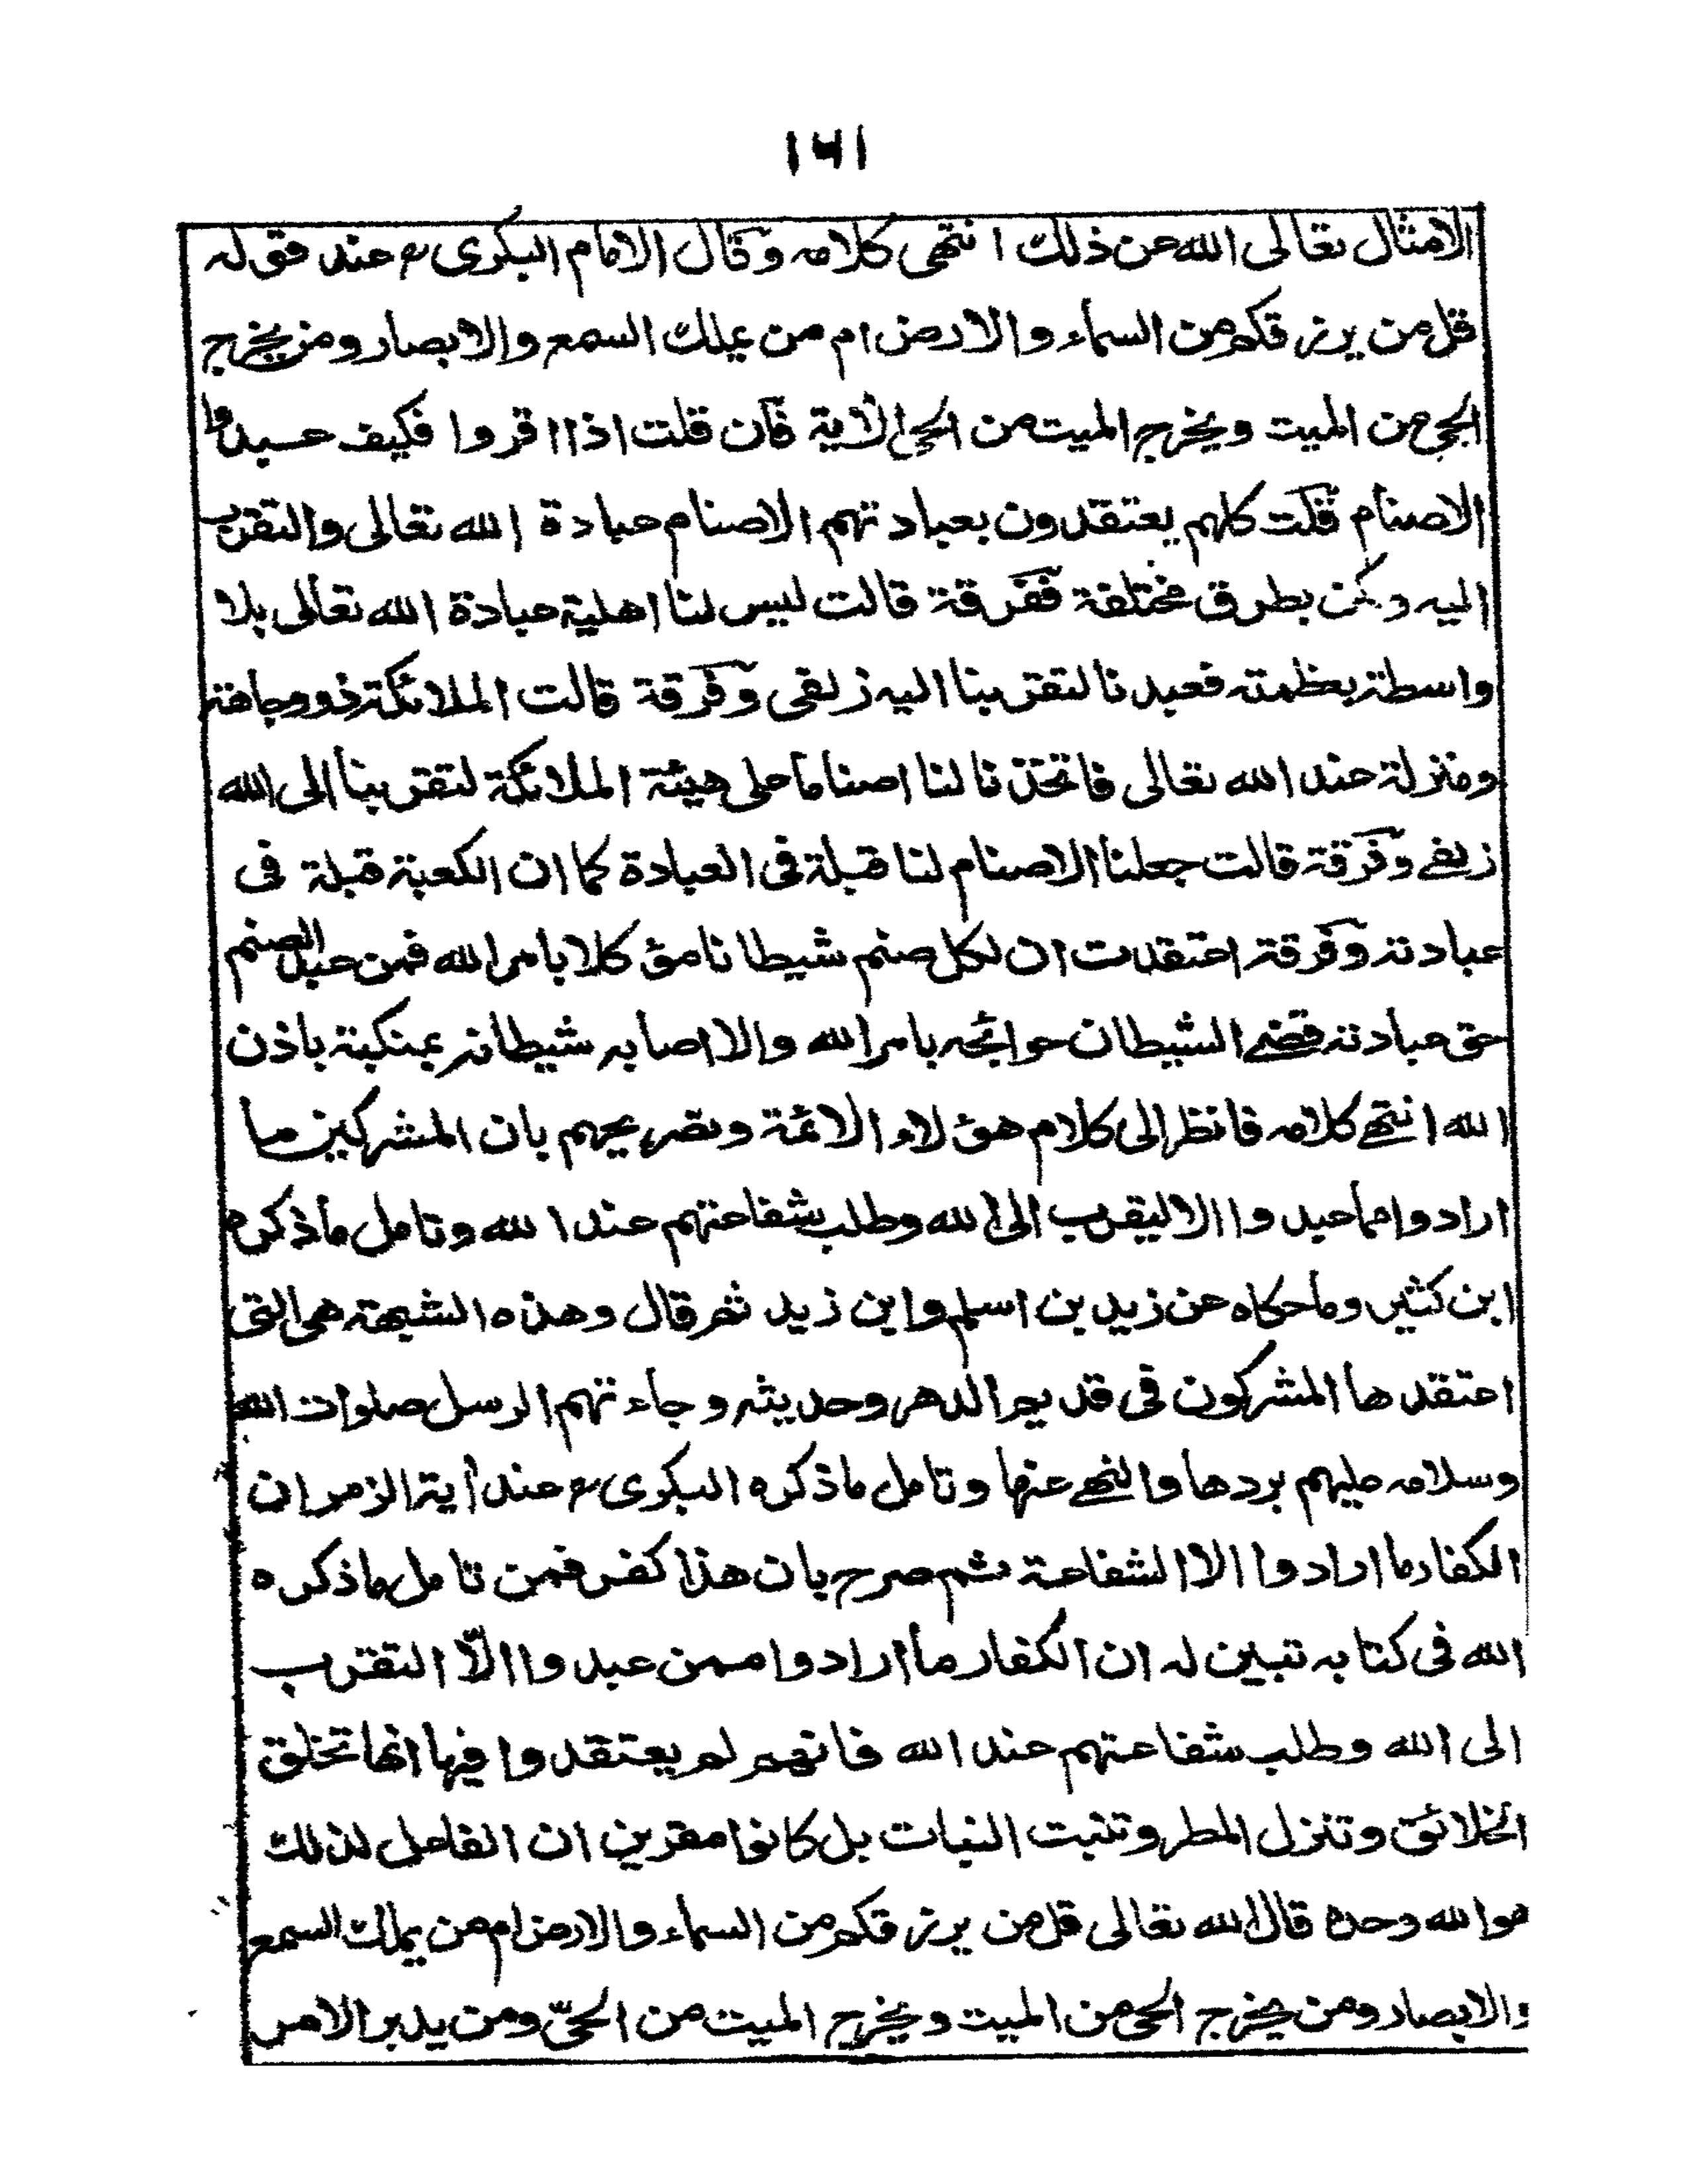 ١٤١
الامثال تعالى الله عن ذلك انتهى كلامه وقال الامام البكرى رح عند قوله
قل من يرزقكم من السماء والارض ام من يملك السمع والابصار ومن يخرج
الحي من الميت ويخرج الميت من الحي الآية فان قلت اذا اقروا فكيف عبدوا
الاصنام قلت كلهم يعتقدون بعبادتهم الاصنام عبادة الله تعالى والتقرب
اليه ولكن بطرق مختلفة ففرقة قالت ليس لنا اهلية عبادة الله تعالى بلا
واسطة بعظمته فعبدنا لتقربنا اليه زلفى وفرقة قالت الملائكة ذو وجاهة
ومنزلة عند الله تعالى فاتخذنا لنا اصناما على هيئة الملائكة لتقربنا الى الله
زلفى وفرقة قالت جعلنا الاصنام لنا قبلة في العبادة كما ان الكعبة قبلة في
عبادته وفرقة اعتقدت ان لكل صنم شيطانا مؤكلا بامر الله فمن عبد الصنم
حق عبادته قضى الشيطان حوائجه بامر الله والا اصابه شيطانه بمنكبة باذن
الله انتهى كلامه فانظر الى كلام هؤلاء الائمة وتصريحهم بان المشركين ما
ارادوا مما عبدوا الا ليقرب الى الله وطلب شفاعتهم عند الله وتامل ما ذكره
ابن كثير وما حكاه عن زيد بن اسلم وابن زيد ثم قال وهذه الشبهة هى التى
اعتقدها المشركون فى قديم الدهر وحديثه وجاءتهم الرسل صلوات الله
وسلامه عليهم بردها والنهى عنها وتامل ما ذكره البكرى رح عند آية الزمر ان
الكفار ما ارادوا الا الشفاعة ثم صرح بان هذا كفر فمن تامل ما ذكره
الله فى كتابه تبين له ان الكفار ما ارادوا ممن عبدوا الّا التقرب
الى الله وطلب شفاعتهم عند الله فانهم لم يعتقدوا فيها انها تخلق
الخلائق وتنزل المطر وتنبت النبات بل كانوا مقرين ان الفاعل لذلك
هو الله وحده قال الله تعالى قل من يرزقكم من السماء والارض ام من يملك السمع
والابصار ومن يخرج الحى من الميت ويخرج الميت من الحىّ ومن يدبر الامر